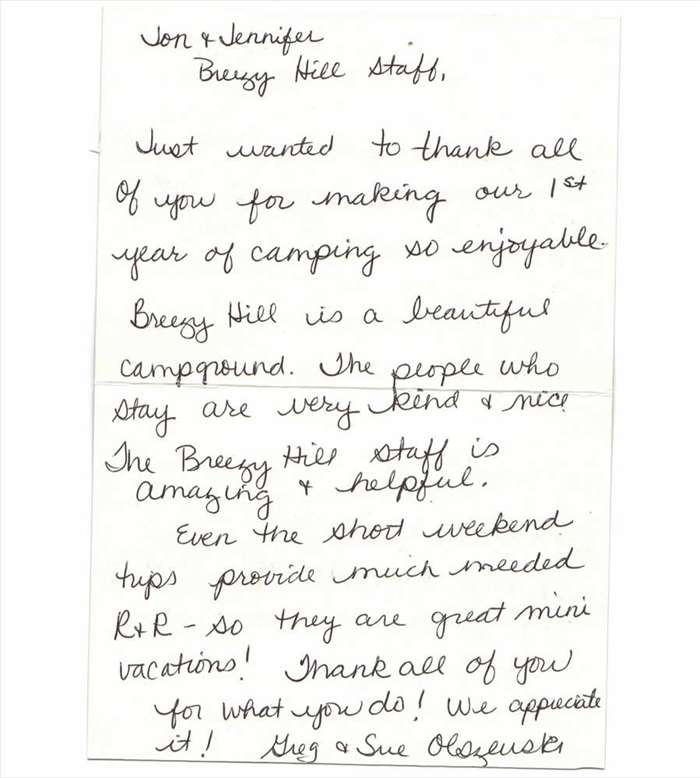 Jon & Jennifer
Breezy Hill Staff,
Just wanted to thank all
of you for making our 1st
year of camping so enjoyable.
Breezy Hill is a beautiful
campground. The people who
stay are very kind & nice
The Breezy Hill staff is
amazing & helpful.
Even the short weekend
trips provide much needed
R&R - so they are great mini
vacations! Thank all of you
for what you do! We appreciate
it! Greg & Sue Olszewski